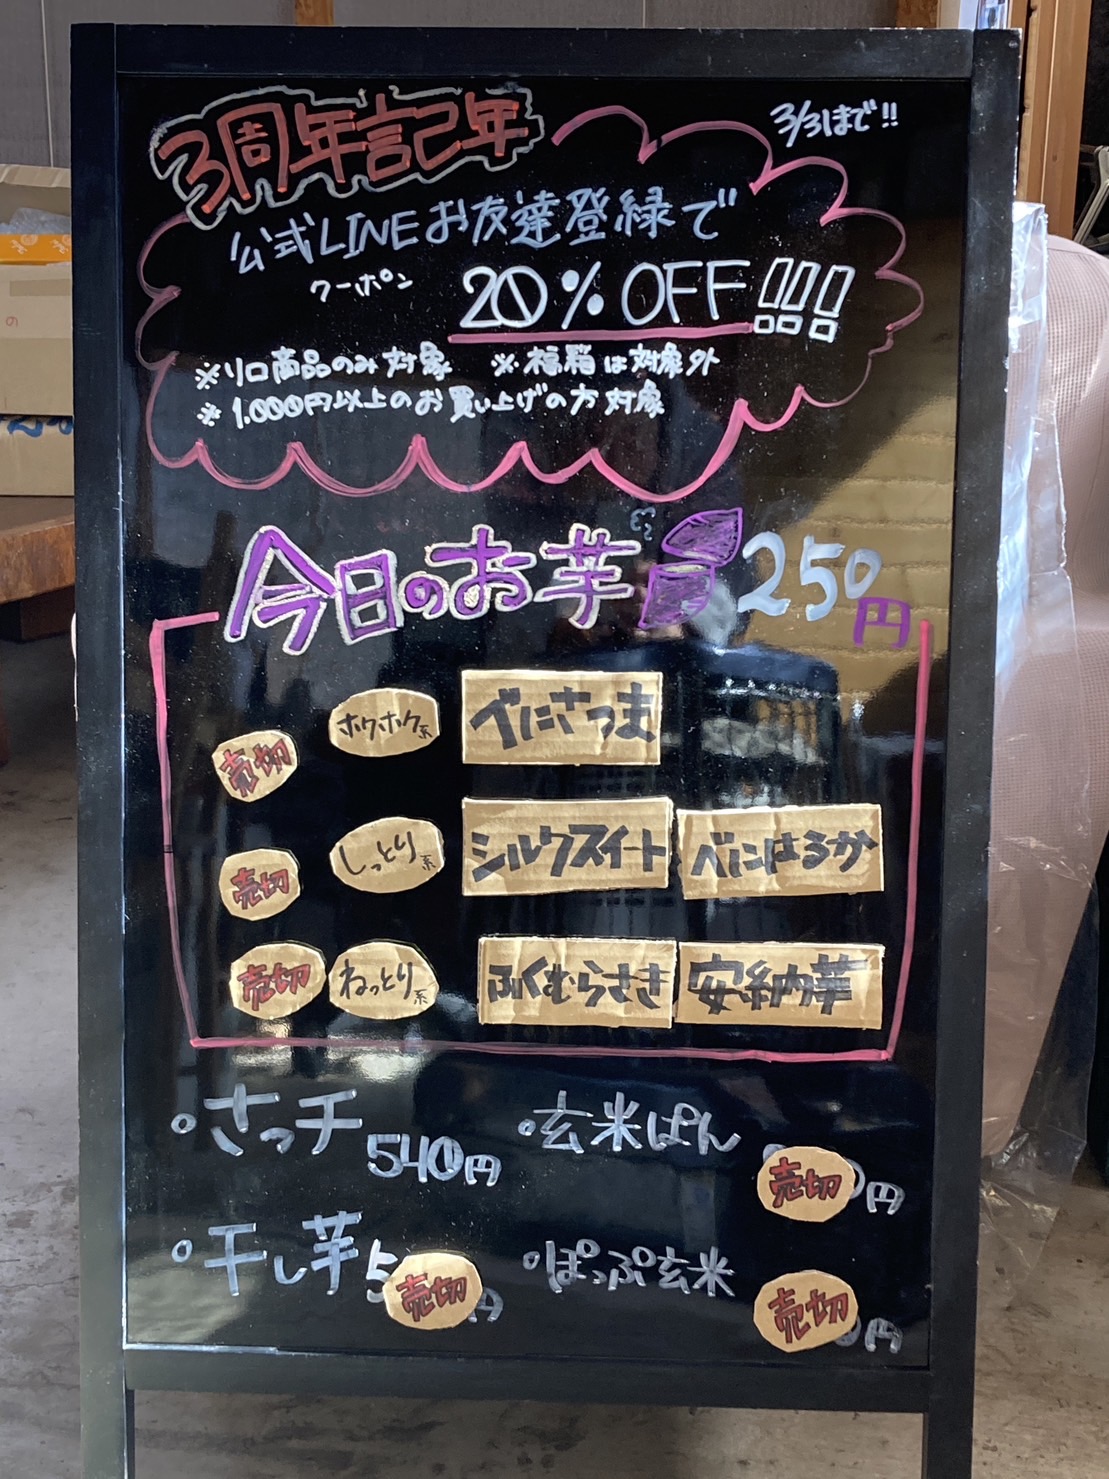 3周年記年
3/31まで!!
公式LINEお友達登緑で
クーポン 20%OFF!!!
※リロ商品のみ対象 ※福箱は対象外
※1,000円以上のお買い上げの方対象
今日のお芋 250円
ホクホク系 べにさつま
売切
しっとり系 シルクスイート べにはるか
売切
売切 ねっとり系 ふくむらさき 安納芋
・さっチ 540円
・玄米ぱん 売切 円
・干し芋 5 売切 円
・ぽっぷ玄米 売切 円